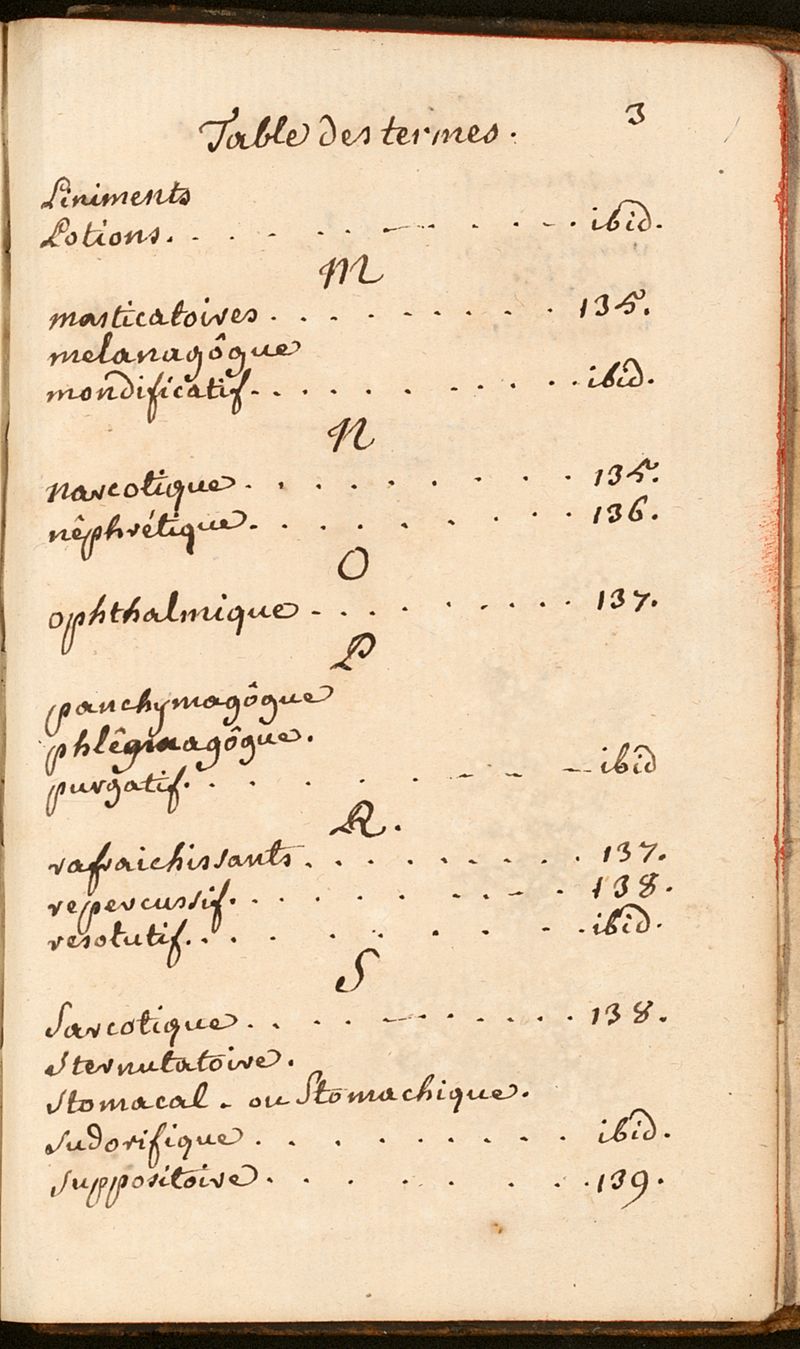 3
Table des termes.
Liniments
Lotions. . . . . . . . . . . ibid.
M
masticatoires . . . . . . . . . 135.
melanagôgue
mondificatif . . . . . . . . . . ibid.
N
narcotique . . . . . . . . . 135.
nêphrétique . . . . . . . . . 136.
O
ophthalmique . . . . . . . . . 137.
P
panchymagôgue
phlêgmagôgue.
purgatif. . . . . . . . . . ibid
R.
rafraichissants . . . . . . . . 137.
repercussif. . . . . . . . . . 138.
resolutif. . . . . . . . . . ibid.
S
Sarcotique . . . . . . . . . . 138.
Sternutatoire.
Stomacal. ou Stomachique.
Sudorifique . . . . . . . . . ibid.
Suppositoire . . . . . . . . 139.